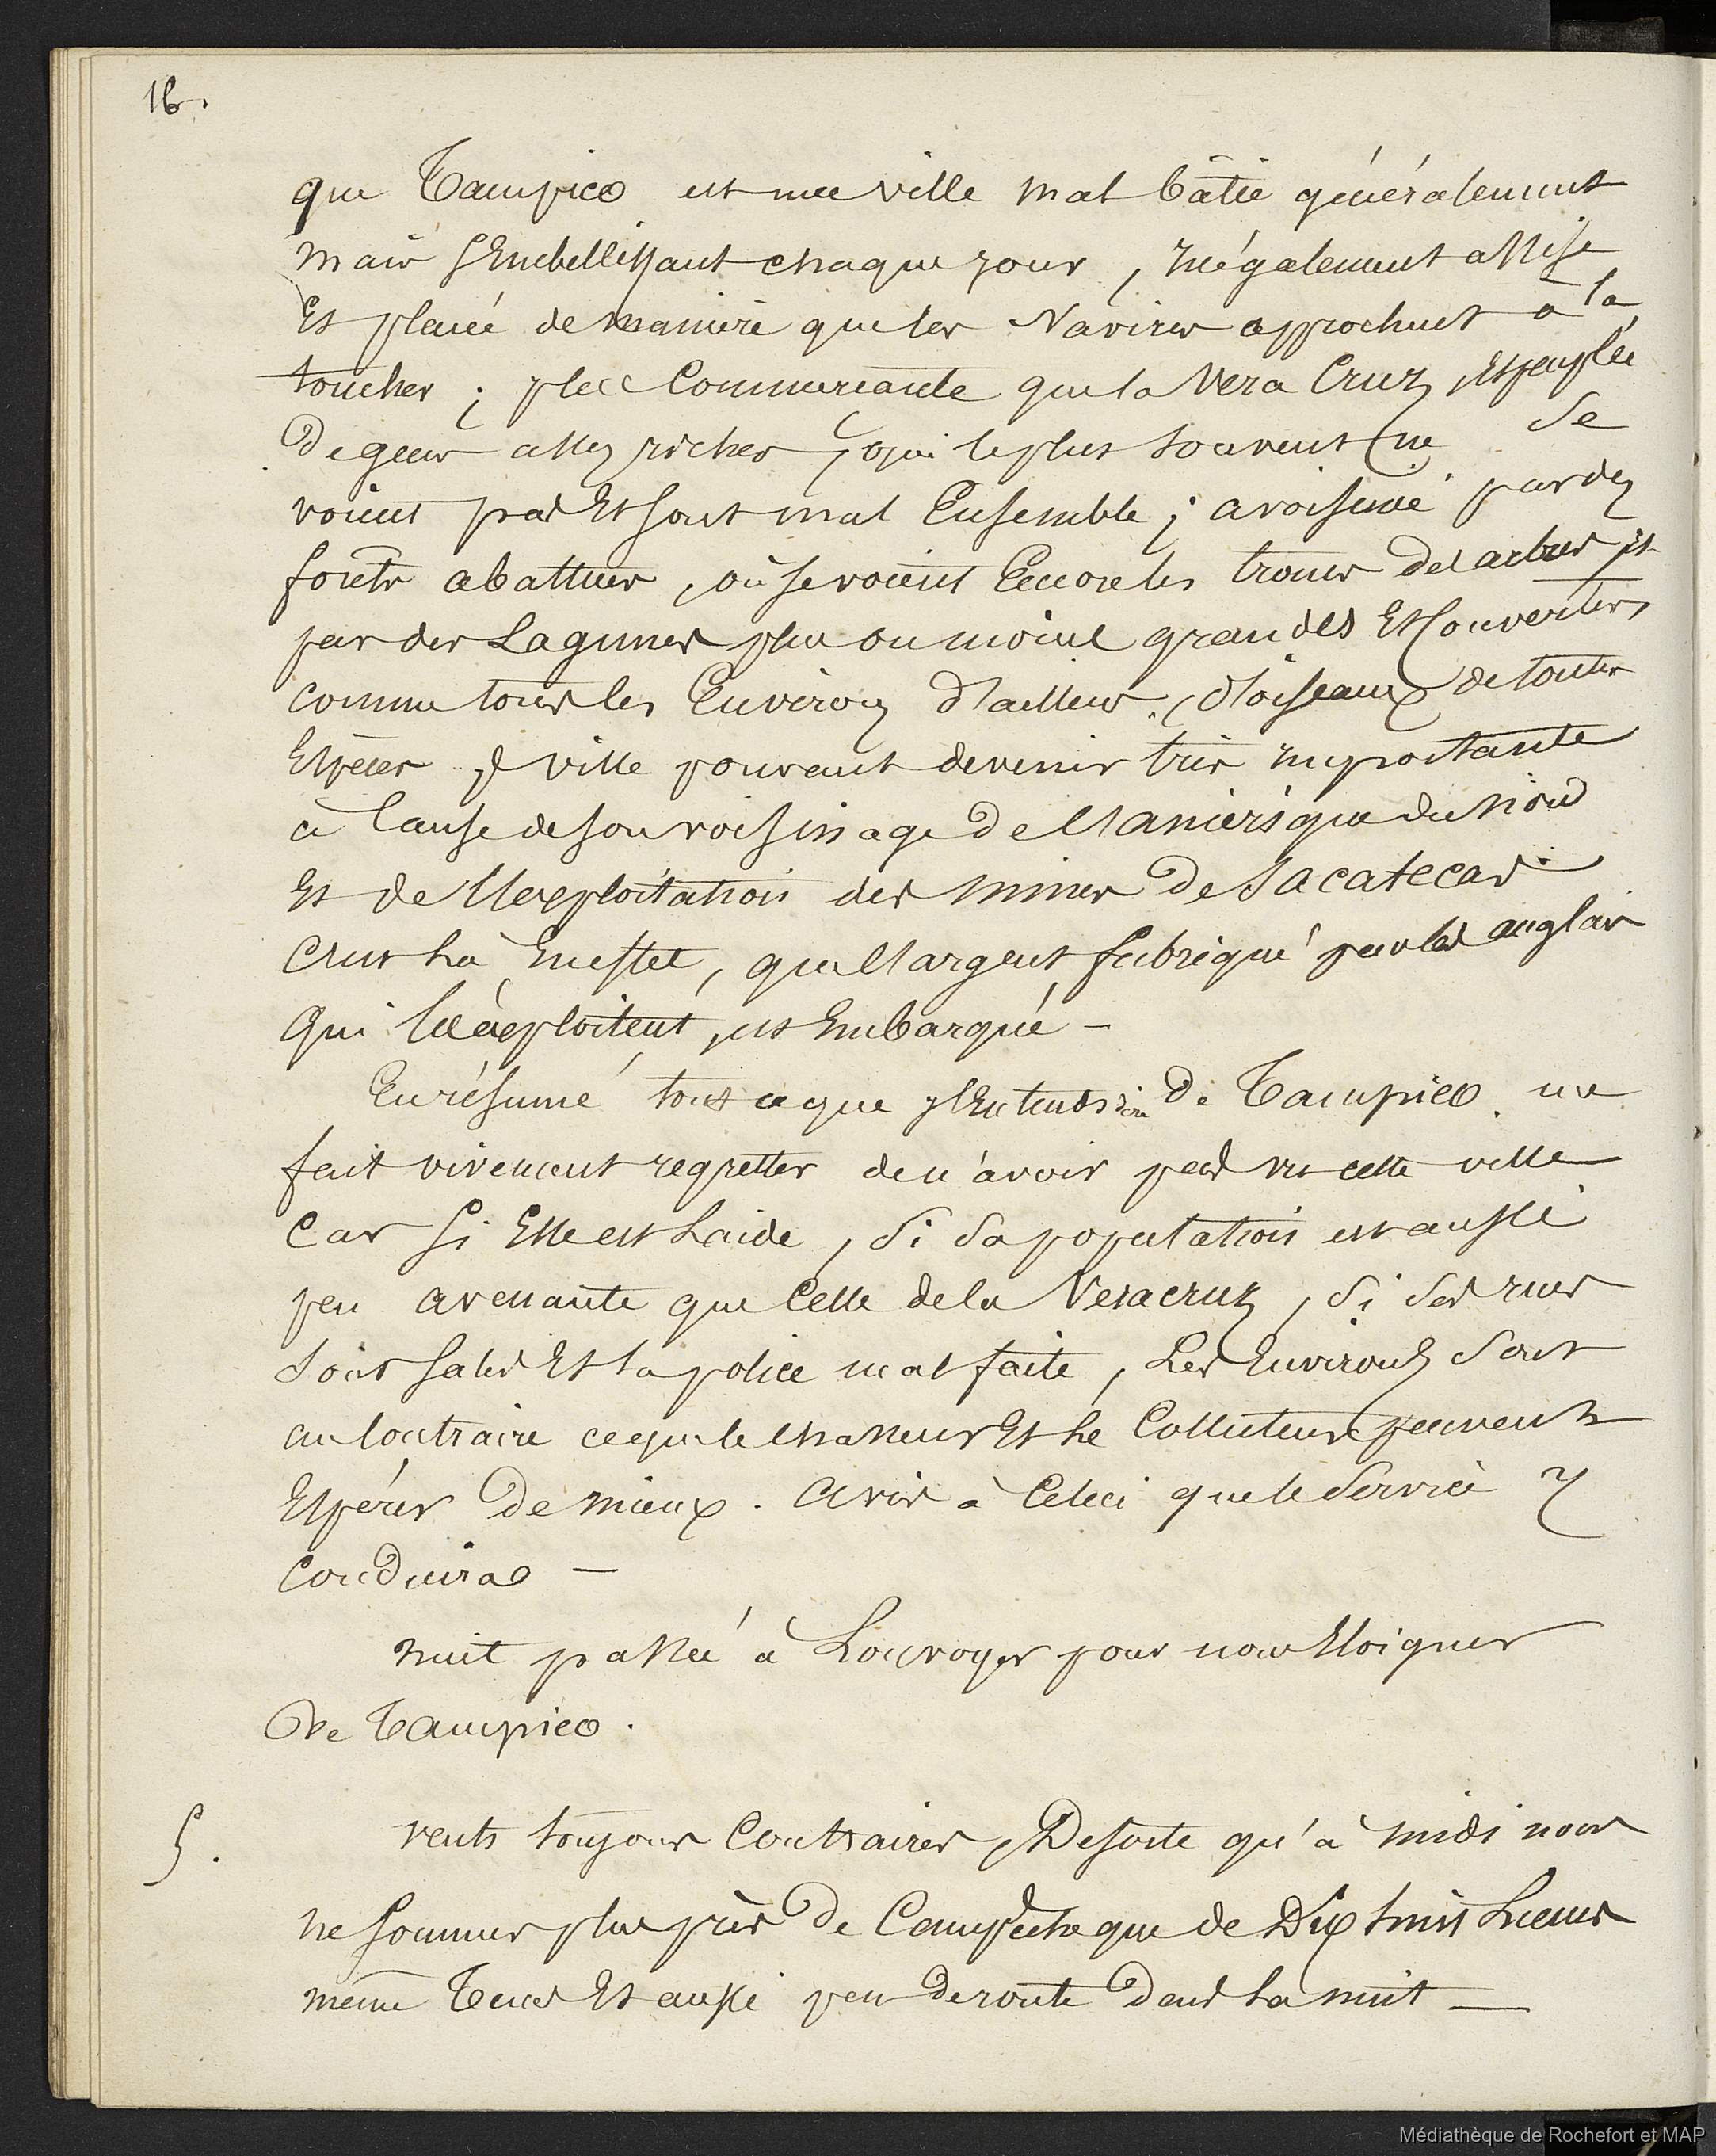 16.
que Tampico est une ville mal bâtie généralement
mais s'embellissant chaque jour, inégalement assise
et placée de manière que les Navires approchent à la
toucher ; plus commercante que la Vera Cruz, et peuplée
de gens assez riches, qui le plus souvent ne se
voient pas et sont mal Ensemble ; avoisiné par des
forêts abattues, où se voient Encore les troncs des arbres et
par des Lagunes plus ou moins grandes et couvertes,
comme tous les Environs d'ailleurs, d'oiseaux de toutes
Espèces ; ville pouvant devenir très importante
à Cause de son voisinage de l'amérique du Nord
et de l'exploitation des mines de Sacatecas.
C'est là, En effet, que l'argent fabriqué par les anglais
qui les exploitent, est Embarqué -
En résumé tout ce que j'Entends dire de Tampico me
fait vivement regretter de n'avoir pas vu cette ville
Car si Elle est Laide, si sa population est aussi
peu avenante que Celle de la Veracruz, si ses rues
sont sales et la police mal faite, Les Environs sont
au Contraire ce que le chasseur et le Collecteur peuvent
Espérer de mieux. Avis à Celui que le Service y
Conduira -
Nuit passée à Louvoyer pour nous Eloigner
De Tampico.
5. vents toujours Contraires, De sorte qu'à midi nous
ne sommes plus près de Campêche que de Dix huit Lieues
même Tems et aussi peu de route dans la nuit —
Médiathèque de Rochefort et MAP